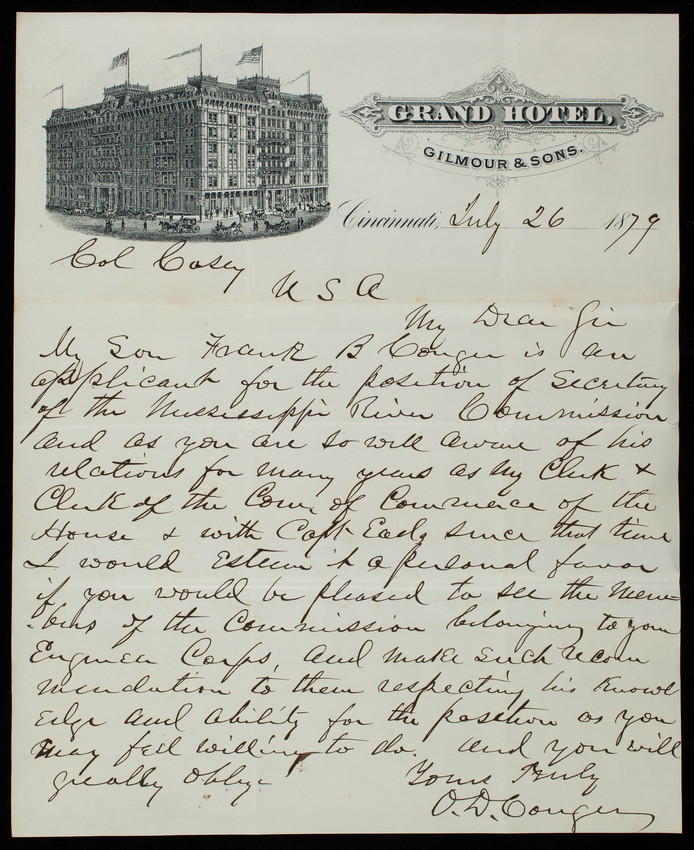 GRAND HOTEL,
GILMOUR & SONS.
Cincinnati, July 26 1879
Col Casey
U S A
My Dear Sir
My Son Frank B Conger is an
applicant for the position of Secretary
of the Mississippi River Commission
and as you are so well aware of his
relations for many years as my Clerk &
Clerk of the Com. of Commerce of the
House & with Capt Eads since that time
I would Esteem it a personal favor
if you would be pleased to see the Mem=
=bers of the Commission belonging to your
Engineer Corps, and make such recom
mendation to them respecting his Knowl
Edge and ability for the position as you
may feel willing to do. and you will
greatly oblige
Yours Truly
O. D. Conger